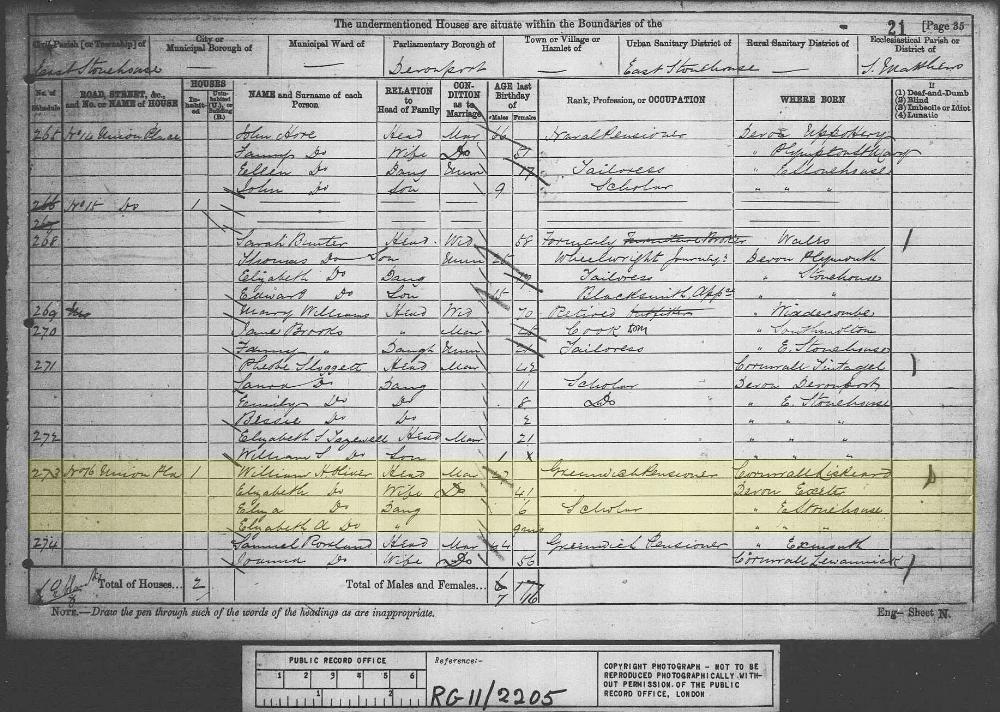 The undermentioned Houses are situate within the Boundaries of the
21 [Page 35
Civil Parish [or Township] of
City or Municipal Borough of
Municipal Ward of
Parliamentary Borough of
Town or Village or Hamlet of
Urban Sanitary District of
Rural Sanitary District of
Ecclesiastical Parish or District of
East Stonehouse — — Devonport — East Stonehouse — S. Matthews
No. of Schedule
ROAD, STREET, &c., and No. or NAME of HOUSE
HOUSES
In-habit-ed
Unin-habited (U.), or Building (B.)
NAME and Surname of each Person
RELATION to Head of Family
CON-DITION as to Marriage
AGE last Birthday of
Males Females
Rank, Profession, or OCCUPATION
WHERE BORN
If
(1) Deaf-and-Dumb
(2) Blind
(3) Imbecile or Idiot
(4) Lunatic
265 No 14 Union Place John Hore Head Mar 66 Naval Pensioner Devon Uppottery
Fanny Do Wife Do 51 " Plympton St Mary
Ellen Do Daug Unm 17 Tailoress " E Stonehouse
John Do Son 9 Scholar " "
266 No 15 Do 1
267
268 Sarah Bunter Head Wid 58 Formerly Furniture Broker Wells
Thomas Do Son Unm 25 Wheelwright Journey Devon Plymouth
Elizabeth Do Daug 19 Tailoress " Stonehouse
Edward Do Son 15 Blacksmith App " "
269 Mary Williams Head Wid 70 Retired " Widdecombe
270 Jane Brooks " Mar Cook Dom " Southmolton
Fanny " Daugh Unm Tailoress " E. Stonehouse
271 Phebbe Sloggett Head Mar 42 Cornwall Tintagel
Laura Do Daug 11 Scholar Devon Devonport
Emily Do Do 8 Do " E. Stonehouse
Bessie Do Do 2 " "
272 Elizabeth S Tazewell Head Mar 21 " " "
William S Do Son 1 " " "
273 No 16 Union Pla 1 William A Hiver Head Mar 47 Greenwich Pensioner Cornwall Liskeard
Elizabeth Do Wife Do 41 Devon Exeter
Eliza Do Daug 6 Scholar " E Stonehouse
Elizabeth A Do " 9 ms " " "
274 Samuel Rowland Head Mar 64 Greenwich Pensioner " Exmouth
Joanna Do Wife Do 56 Cornwall Lewannick
Total of Houses... 2
Total of Males and Females... 7 16
NOTE.—Draw the pen through such of the words of the headings as are inappropriate.
Eng— Sheet N.
PUBLIC RECORD OFFICE
1 2 3 4 5 6
1 2
Reference:-
RG 11/2205
COPYRIGHT PHOTOGRAPH - NOT TO BE
REPRODUCED PHOTOGRAPHICALLY WITH-
OUT PERMISSION OF THE PUBLIC
RECORD OFFICE, LONDON